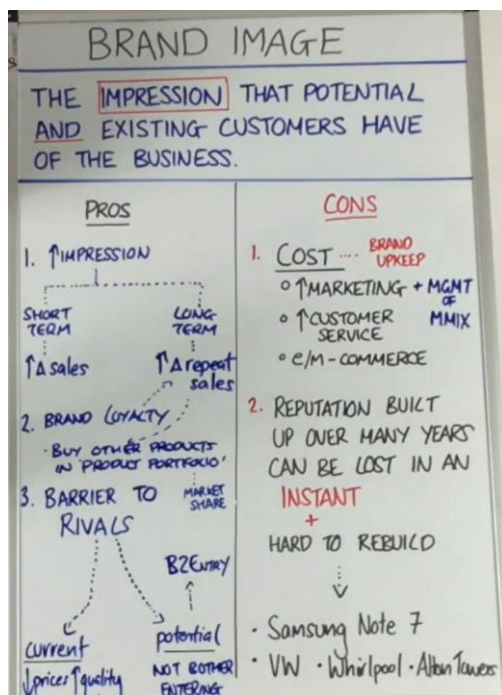 BRAND IMAGE
THE IMPRESSION THAT POTENTIAL
AND EXISTING CUSTOMERS HAVE
OF THE BUSINESS.
PROS
1. ↑IMPRESSION
SHORT TERM
↑Δ sales
LONG TERM
↑Δ repeat
sales
2. BRAND LOYALTY
· BUY OTHER PRODUCTS
IN 'PRODUCT PORTFOLIO'
3. BARRIER TO
RIVALS
MARKET
SHARE
B2ENTRY
current
↓prices ↑quality
potential
NOT BOTHER
ENTERING
CONS
1. COST .... BRAND
UPKEEP
o ↑MARKETING + MGMT
OF
MMIX
o ↑CUSTOMER
SERVICE
o e/M-COMMERCE
2. REPUTATION BUILT
UP OVER MANY YEARS
CAN BE LOST IN AN
INSTANT
+
HARD TO REBUILD
· Samsung Note 7
· VW · Whirlpool · Alton Towers